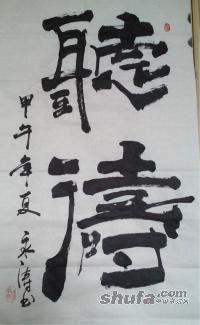 聽濤
甲午年夏
shufa.com